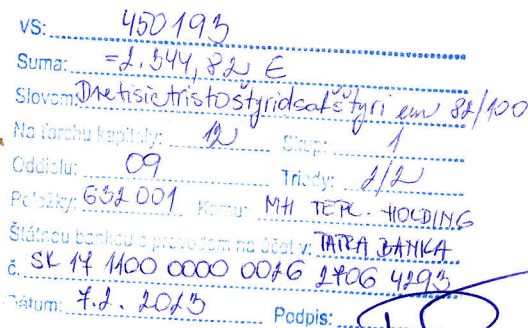 VS: 450193
Suma: =2.344,82 €
Slovom: Dvetisictristoštyridsaťštyri eur 82/100
Na ťarchu kapitoly: 12 Skup: 1
Oddielu: 09 Triedy: 2/2
Položky: 632 001 Komu: MH TEPL. HOLDING
Štátnou bankou s prevodom na účet v: TATRA BANKA
č. SK 17 1100 0000 0026 2706 4293
Dátum: 7.2.2023 Podpis: